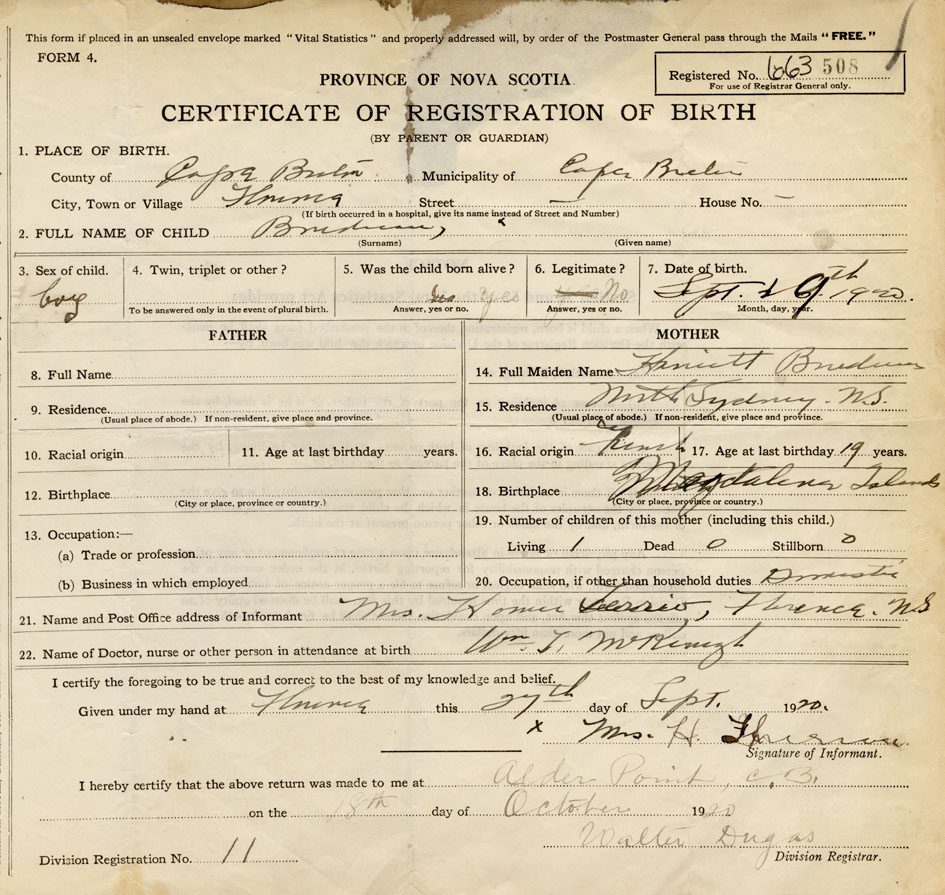 This form if placed in an unsealed envelope marked "Vital Statistics" and properly addressed will, by order of the Postmaster General pass through the Mails "FREE."
FORM 4.
Registered No. 663 508
For use of Registrar General only.
PROVINCE OF NOVA SCOTIA
CERTIFICATE OF REGISTRATION OF BIRTH
(BY PARENT OR GUARDIAN)
1. PLACE OF BIRTH.
County of Cape Breton Municipality of Cape Breton
City, Town or Village Florence Street — House No. —
(If birth occurred in a hospital, give its name instead of Street and Number)
2. FULL NAME OF CHILD
(Surname) (Given name)
3. Sex of child. 4. Twin, triplet or other? 5. Was the child born alive? 6. Legitimate? 7. Date of birth.
boy Yes yes No Sept. 19th 1920.
To be answered only in the event of plural birth. Answer, yes or no. Answer, yes or no. Month, day, year.
FATHER MOTHER
8. Full Name 14. Full Maiden Name Harriett
9. Residence 15. Residence North Sydney. N.S.
(Usual place of abode.) If non-resident, give place and province. (Usual place of abode.) If non-resident, give place and province.
10. Racial origin 11. Age at last birthday years. 16. Racial origin French 17. Age at last birthday 19 years.
12. Birthplace 18. Birthplace Magdalene Islands
(City or place, province or country.) (City or place, province or country.)
13. Occupation:— 19. Number of children of this mother (including this child.)
(a) Trade or profession Living 1 Dead 0 Stillborn 0
(b) Business in which employed 20. Occupation, if other than household duties Domestic
21. Name and Post Office address of Informant Mrs. Homer , Florence. N.S
22. Name of Doctor, nurse or other person in attendance at birth Wm. T. McKeough
I certify the foregoing to be true and correct to the best of my knowledge and belief.
Given under my hand at Florence this 27th day of Sept. 1920.
x Mrs. H.
Signature of Informant.
I hereby certify that the above return was made to me at Alder Point, C.B.
on the 18th day of October 1920
Walter Dugas
Division Registration No. 11 Division Registrar.